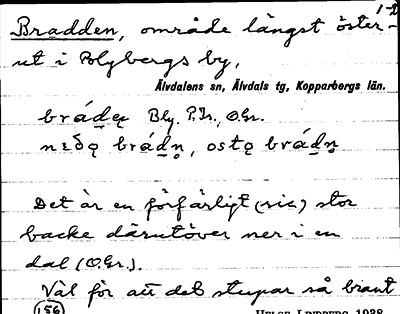 1-2
Bradden, område längst öster-
ut i Blybergs by,
Älvdalens sn, Älvdals tg, Kopparbergs län.
bráde̦ Bly. P.Ir., O.Gr.
nɛðo̦ brádn̥, osto̦ brádn̥
Det är en förfärligt (sic) stor
backe därutöver ner i en
dal (O.Gr.).
Väl för att det stupar så brant
(156)
HELGE LINDBERG 1938